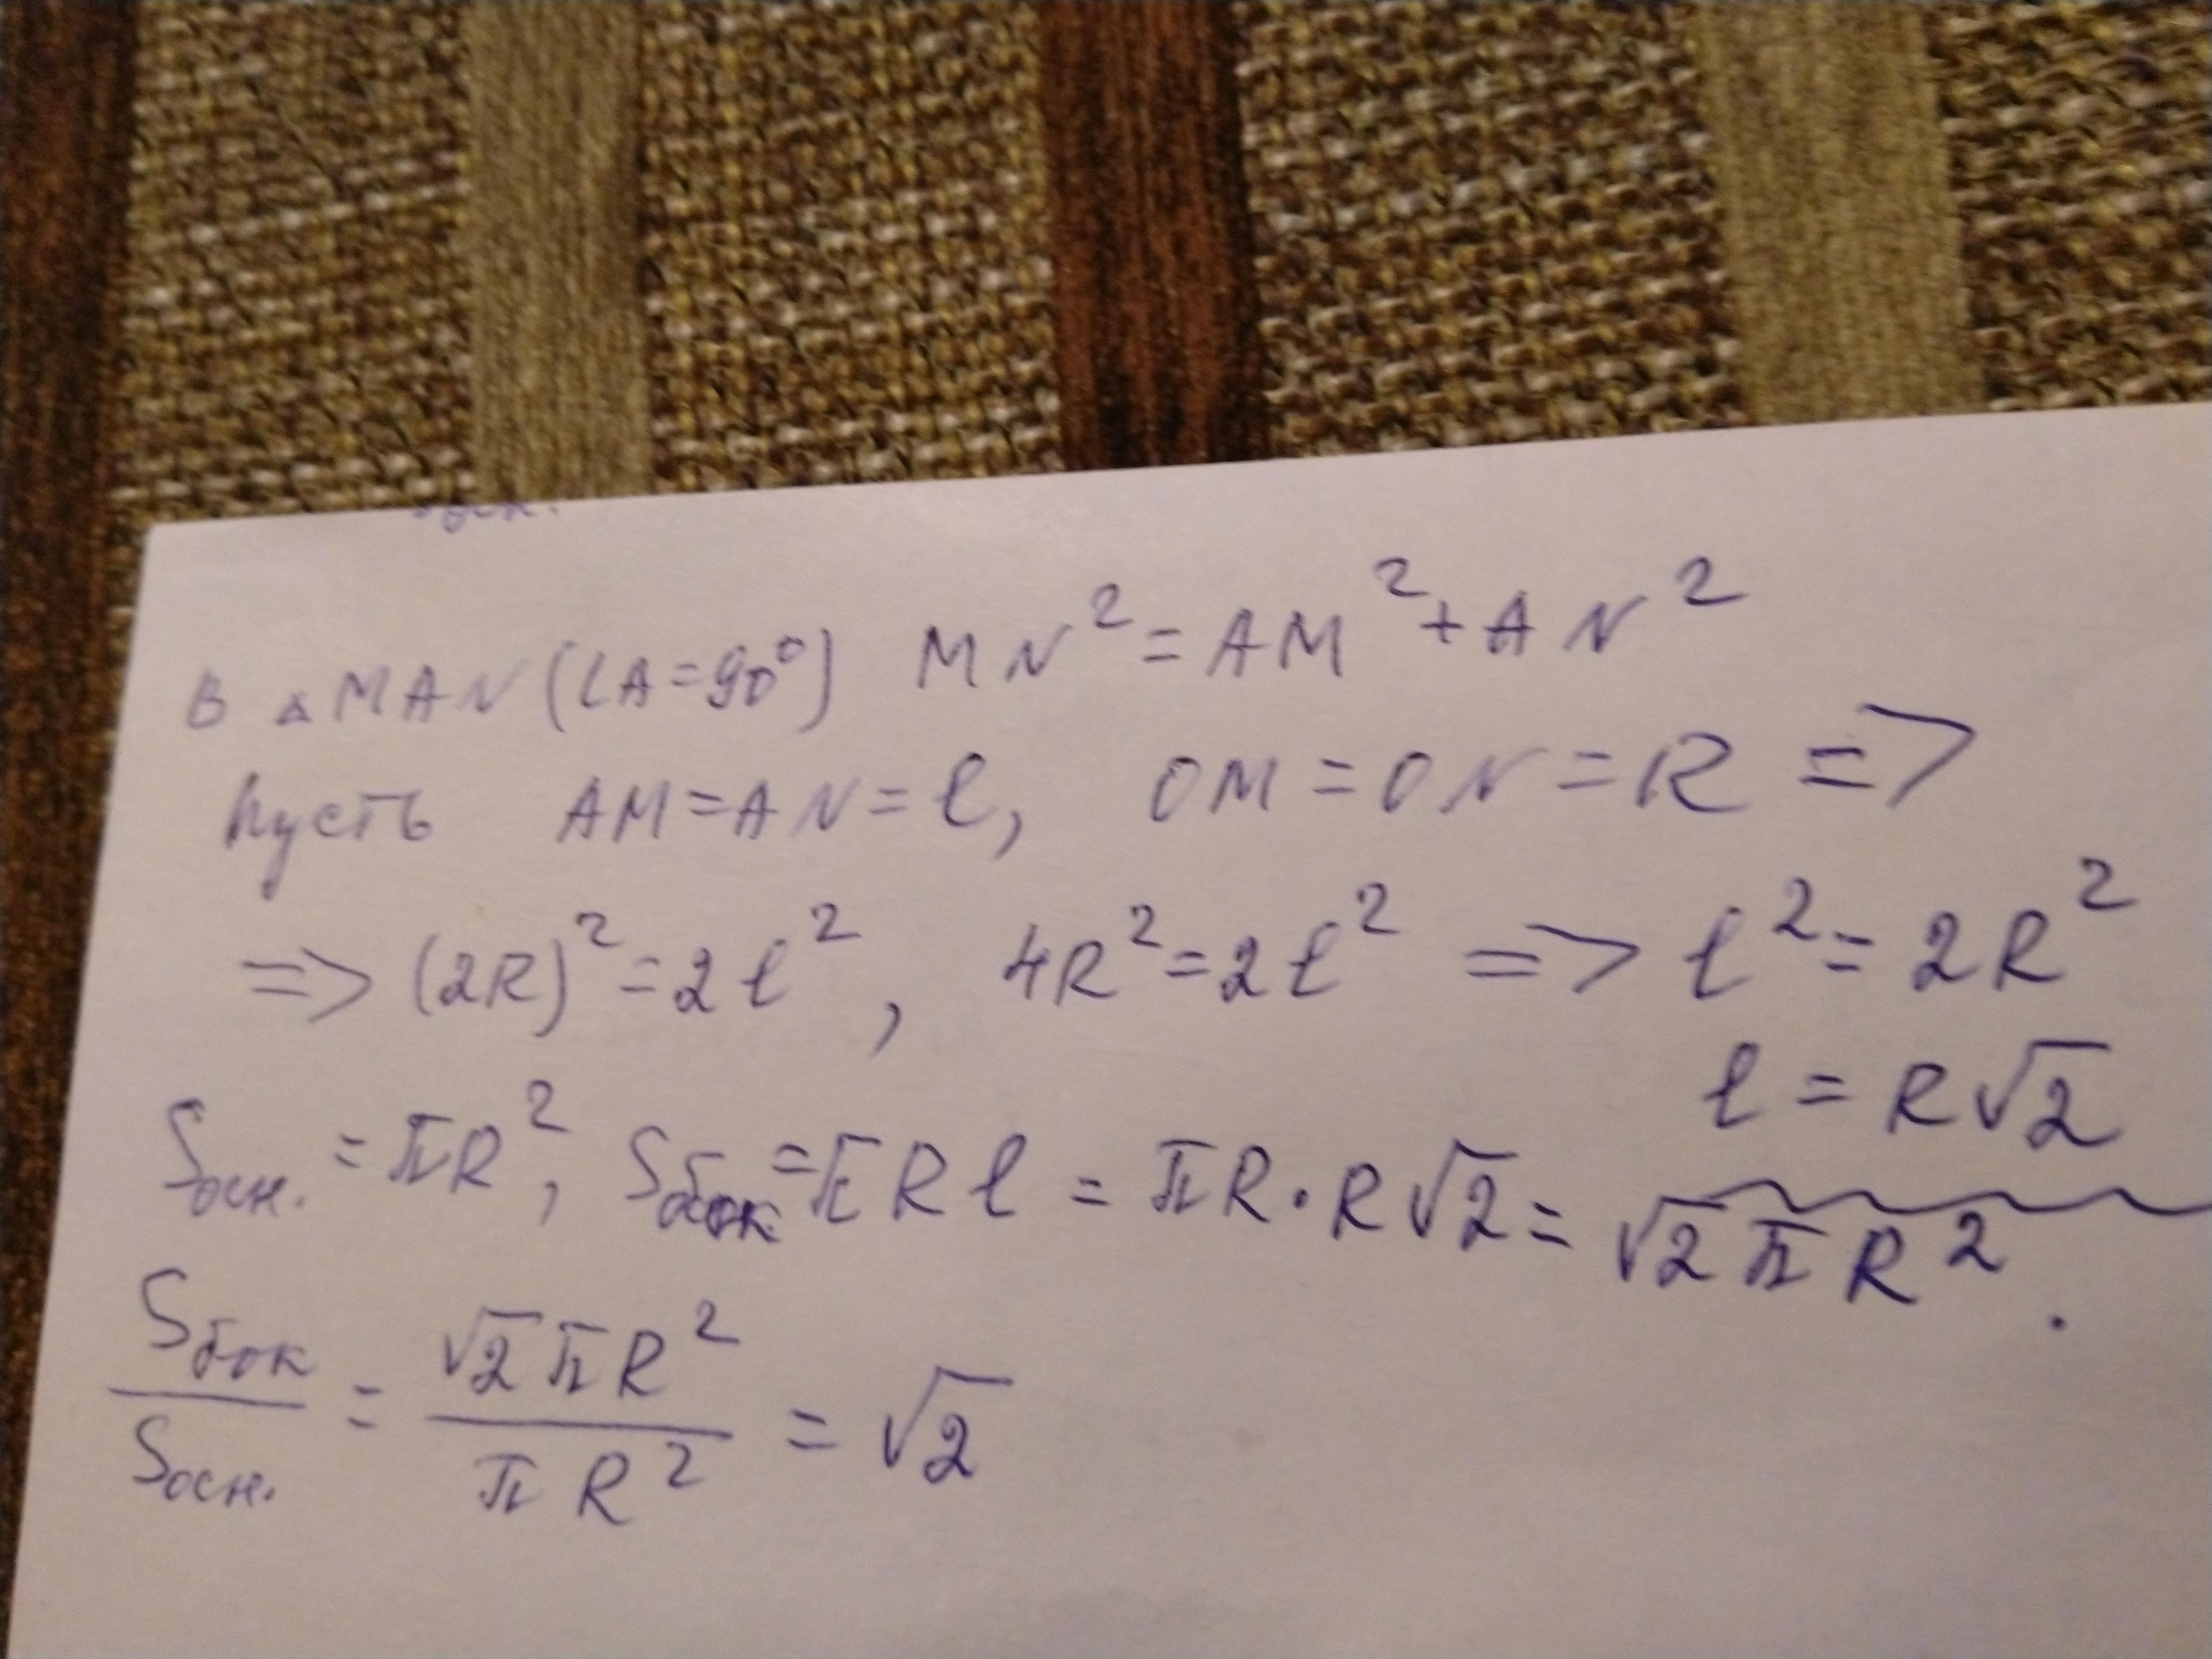 В △MAN (∠A=90°) MN²=AM²+AN²
Пусть AM=AN=l, OM=ON=R =>
=> (2R)²=2l², 4R²=2l² => l²=2R²
l=R√2
Sосн.=πR², Sбок.=πRl=πR·R√2=√2πR².
Sбок/Sосн.=√2πR²/πR²=√2